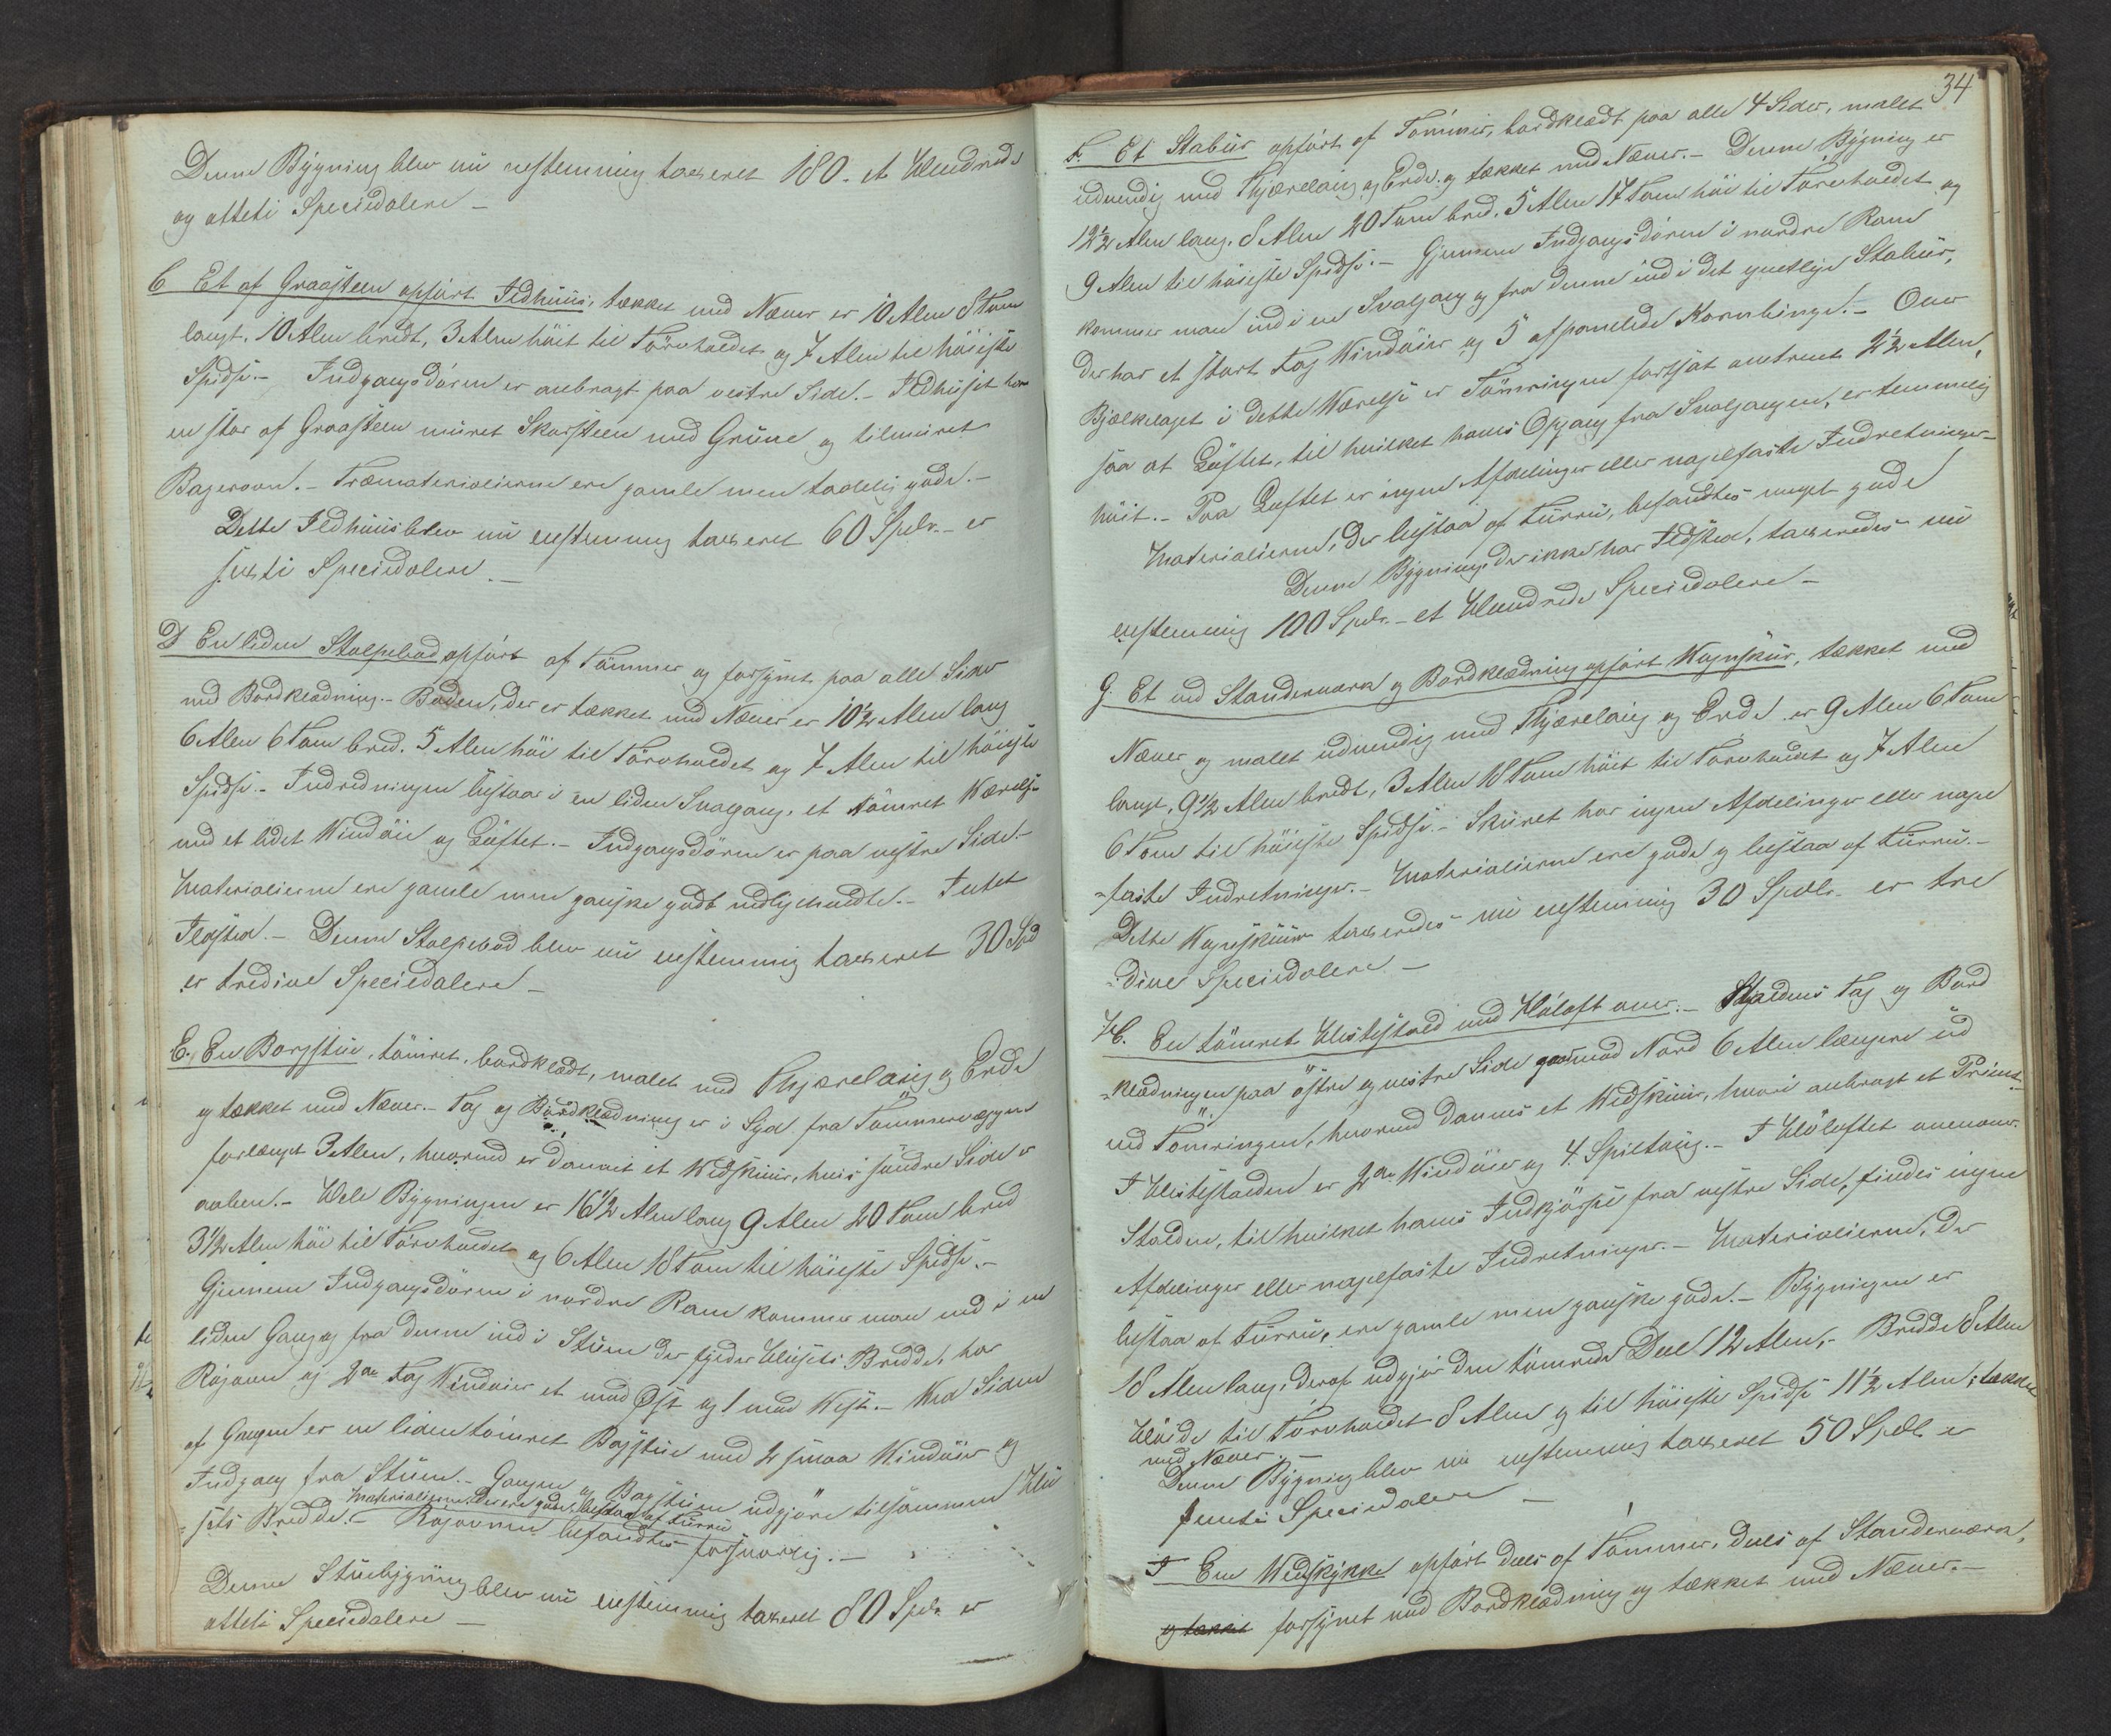 Denne Bygning blev nu eenstemmig taxeret 180. et Hundrede
og otteti Speciedalere –
C Et af Graasteen opført Ildhuus, tækket med Næver er 10 Alen 8 Tom
langt, 10 Alen bredt, 3 Alen høit til Førvholdet og 7 Alen til høieste
Spidse. – Indgangsdøren er anbragt paa vestre Side. – Ildhuset har
en stor af Graasteen muret Skorsteen med Gruue og tilmuret
Bagerovn. – Træmaterialierne ere gamle men gode. –
Dette Ildhuus blev nu eenstemmig taxeret 60 Spdr. – er
sexti Speciedalere. –
D En liden Stolpebod opført af Tømmer og forsynet paa alle Sider
med Bordklædning. – Boden, der er tækket med Næver er 10½ Alen lang
6 Alen 6 Tom bred. 5 Alen høi til Førvholdet og 7 Alen til høieste
Spidse. – Indredningen bestaar i en liden Svalgang, et tømret Værelse
med et lidet Vindøie og Løftet. – Indgangsdøren er paa vestre Side. –
Materialierne ere gamle men ganske godt vedligeholdte. – Intet
Ildsted. – Denne Stolpebod blev nu eenstemmig taxeret 30 Spd
er tredive Speciedalere –
E, En Borgstue, tømret, bordklædt, malet med Thjærelaug og Erde
og tækket med Næver. – Tag og Bordklædning er i Syd fra Tømmervæggen
forlænget 3 Alen, hvorved er dannet et Vedskuur, hvis søndre Side er
aaben. – Hele Bygningen er 16½ Alen lang 9 Alen 20 Tom bred
3½ Alen høi til Førvholdet og 6 Alen 18 Tom til høieste Spidse. –
Gjennem Indgangsdøren i nordre Ram kommer man ind i en
liden Gang og fra denne ind i Stuen der fylder Husets Bredde, har
Rogovn og 2de Fag Vinduier et mod Øst og 1 mod Vest. – Ved Siden
af Gangen er en liden tømret Bagstue med 2 smaa Vinduier og
Indgang fra Stuen. – Gangen og Bagstuen udgjøre tilsammen Hu
Materialierne, der ere gode, bestaa af Furru
=sets Bredde. – Rogovnen befandtes forsvarlig. –
Denne Stuebygning blev nu eenstemmig taxeret 80 Spdr. er
otteti Speciedalere –
34
F. Et Stabur opført af Tømmer, bordklædt paa alle 4 Sider, malet
udvendig med Thjærelaug og Erde og tækket med Næver. – Denne Bygning er
12½ Alen lang. 8 Alen 20 Tom bred. 5 Alen 17 Tom høi til Førvholdet og
9 Alen til høieste Spidse. – Gjennem Indgangsdøren i nordre Ram
kommer man ind i en Svalgang og fra denne ind i det egentlige Stabur,
der har et stort Fag Vinduier og 5 afpanelede Kornbinge. – Over
Bjælkelaget i dette Værelse er Tømringen fortsat omtrent 2½ Alen,
saa at Løftet, til hvilket haves Opgang fra Svalgangen, er temmelig
høit. – Paa Løftet er ingen Afdelinger eller nagelfaste Indretninger –
Materialierne, der bestaa af Furru, befandtes meget gode
Denne Bygning, der ikke har Ildsted, taxeredes nu
eenstemmig 100 Spdr. – et Hundrede Speciedalere –
G. Et ved Standerværk og Bordklædning opført Vognskuur, tækket med
Næver og malet udvendig med Thjærelaug og Erde er 9 Alen 6 Tom
langt, 9½ Alen bredt, 3 Alen 18 Tom høit til Førvholdet og 7 Alen
6 Tom til høieste Spidse. – Skuret har ingen Afdelinger eller nagel
=faste Indretninger. – Materialierne ere gode og bestaa af Furru. –
Dette Vognskuur taxeredes nu eenstemmig 30 Spdlr. er tre
=dive Speciedalere –
H. En tømret Hestestald med Høloft over. – Staldens Tag og Bord
=klædningen paa østre og vestre Side mod Nord 6 Alen længere ud
end Tømringen, hvorved dannes et Vedskuur, hvori anbragt et
I Hestestalden er 2de Vinduier og 4. Spiltaug. – I Høløftet ovenover
Stalden, til hvilket haves Indkjørsel fra vestre Side, findes ingen
Afdelinger eller nagelfaste Indretninger. – Materialierne, der
bestaa af Furru, ere gamle men ganske gode. – Bygningen er
18 Alen lang, deraf udgjør den tømrede Deel 12 Alen, – Bredde 8 Alen
Høide til Førvholdet 8 Alen og til høieste Spidse 11½ Alen; tækket
med Næver. –
Denne Bygning blev nu eenstemmig taxeret 50 Spdlr. er
femti Speciedalere –
I En Vedskykke opført deels af Tømmer, deels af Standerværk,
og tækket forsynet med Bordklædning og tækket med Næver. –